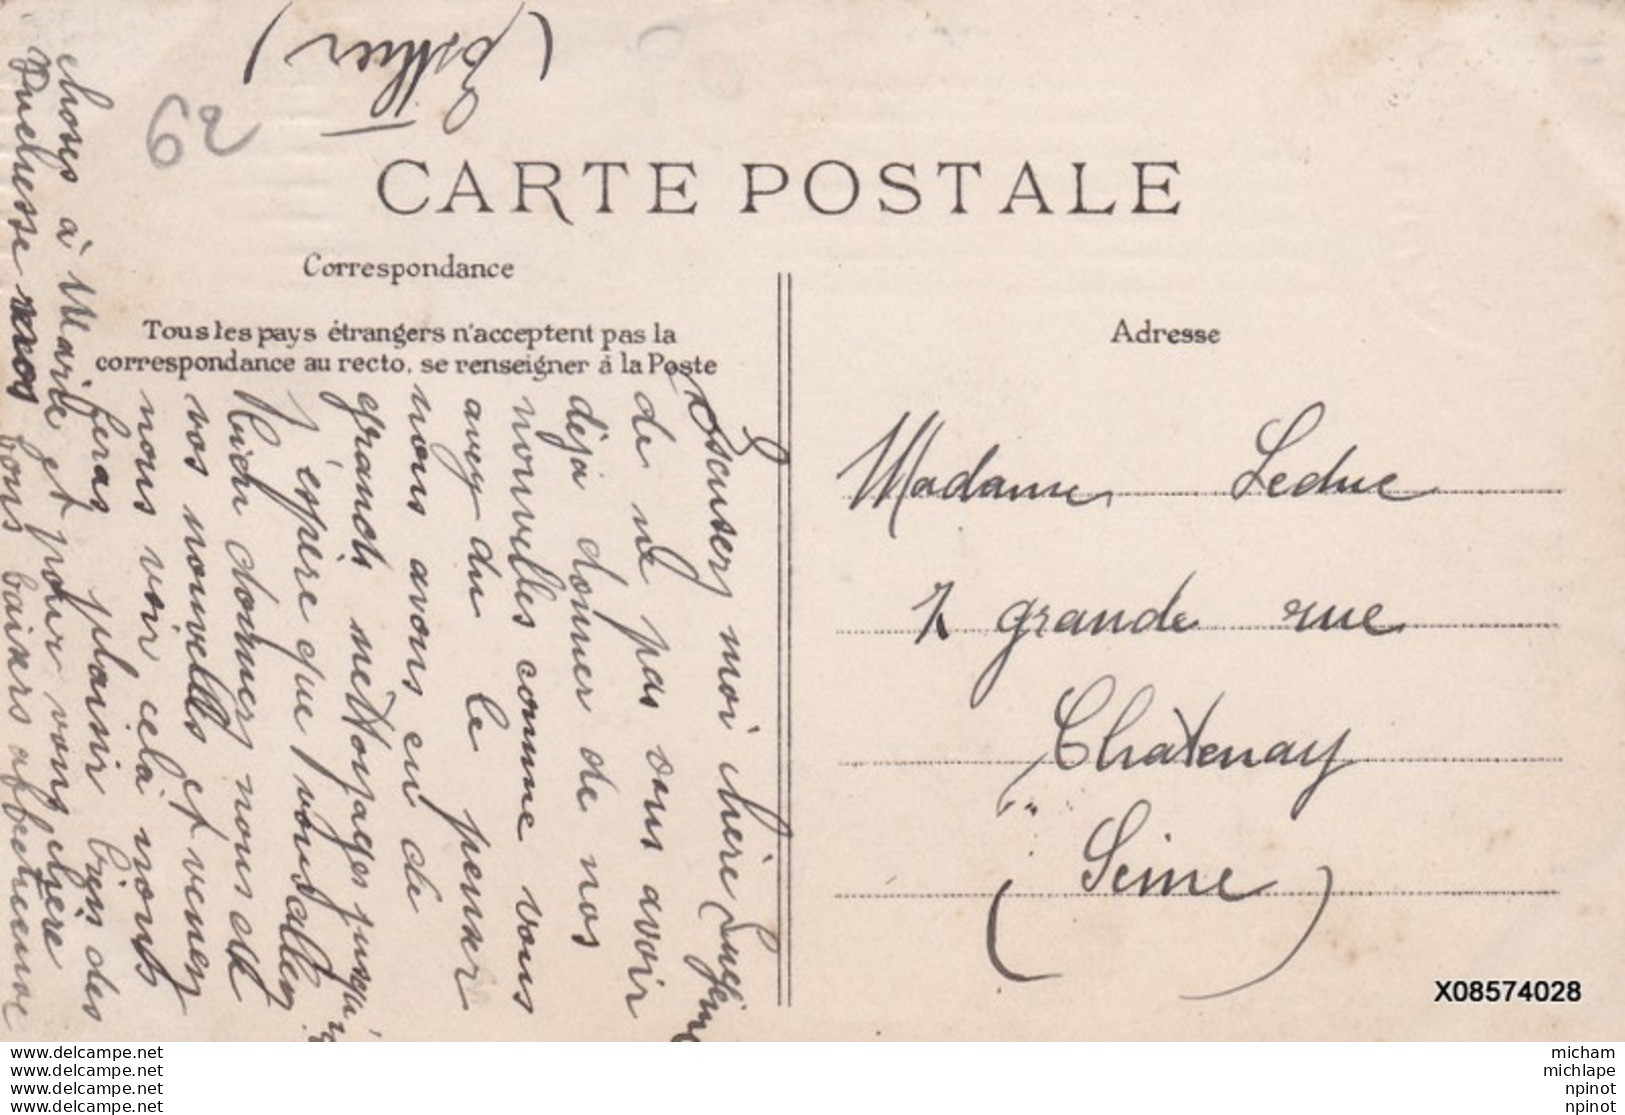 CARTE POSTALE
Correspondance
Tous les pays étrangers n'acceptent pas la
correspondance au recto, se renseigner à la Poste
Adresse
62
Excusez moi chère Eugénie
de ne pas vous avoir
déjà donner de nos
nouvelles comme vous
avez du le penser
nous avons eu de
grands nettoyages jusqu'
J'éspère que vous allez
bien donnez nous de
vos nouvelles et venez
nous voir celà nous
feras plaisir bien des
choses à Marie et pour vous chère
Duchesse nos bons baisers affectueux
Madame Leduc
7 grande rue
Chatenay
(Seine)
X08574028
www.delcampe.net
www.delcampe.net
www.delcampe.net
www.delcampe.net
micham
michlape
npinot
npinot